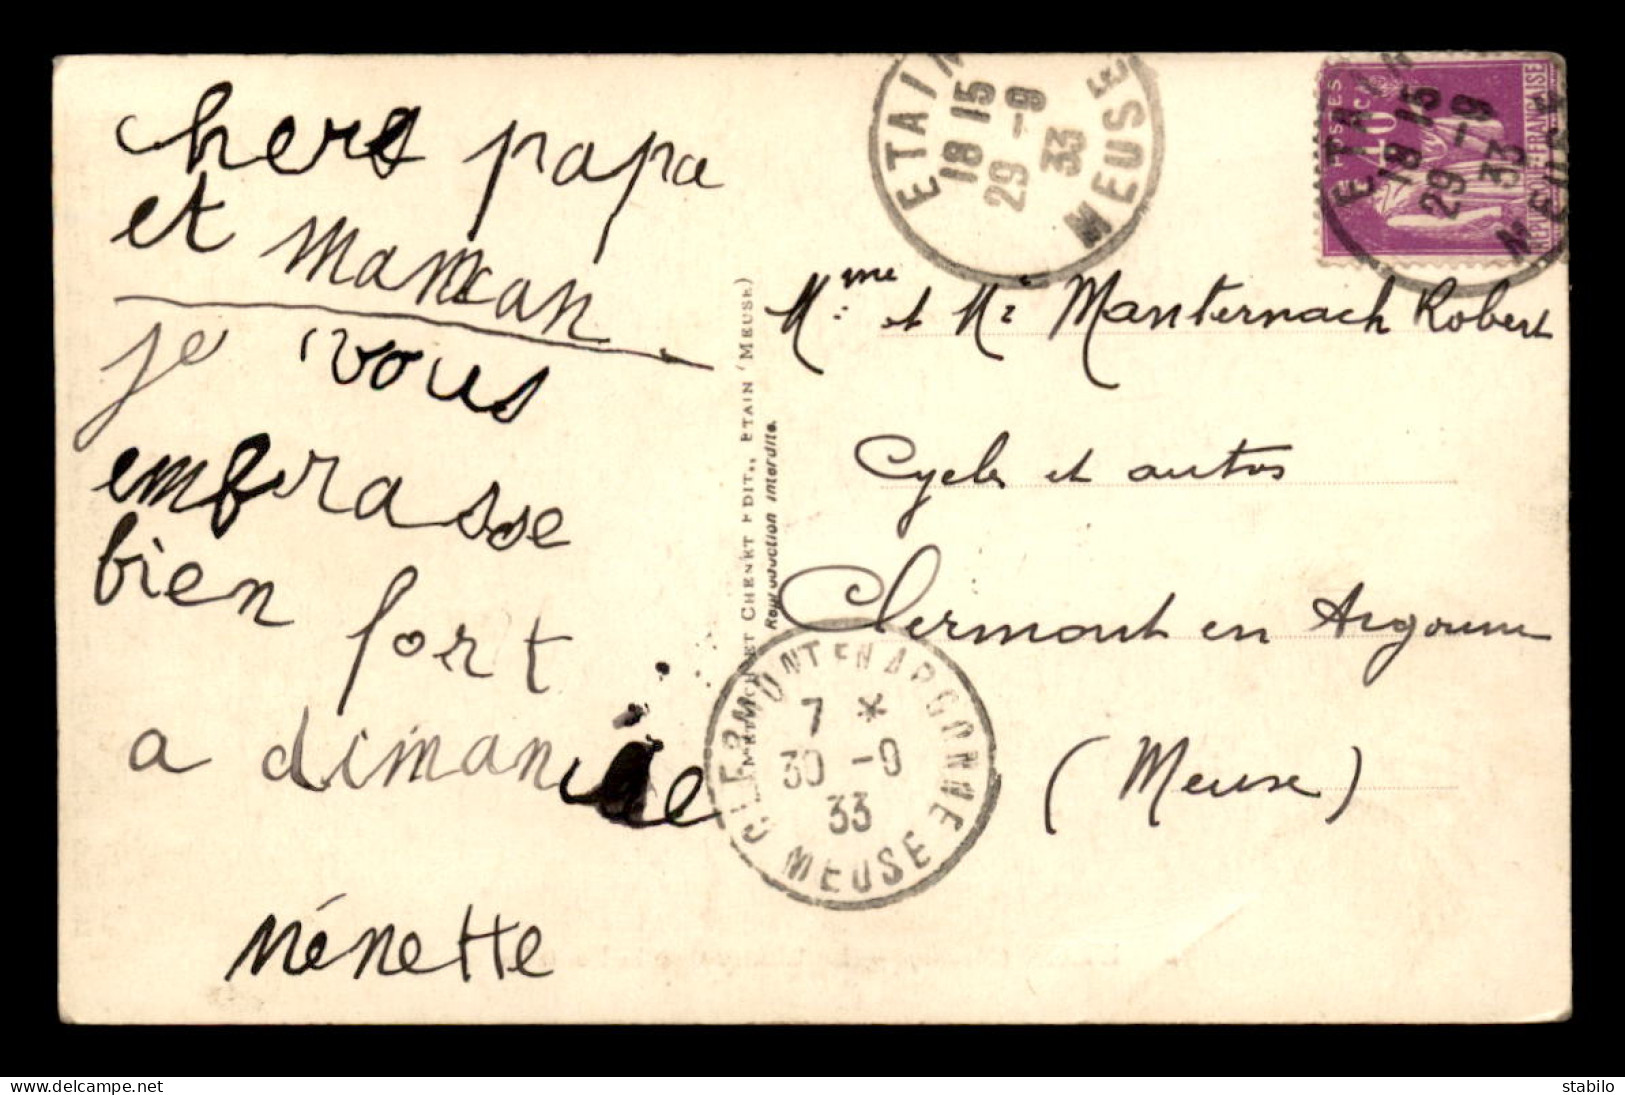 chers papa
et maman
je vous
embrasse
bien fort
a dimanche
Nénette
ET CHENET EDIT., ETAIN (MEUSE)
Reproduction interdite.
ETAIN
18 15
29 -9
33
MEUSE
POSTES
REPUBLIQUE FRANÇAISE
ETAIN
18 15
29 -9
33
MEUSE
Mme et Mr Manternach Robert
Cycles et autos
Clermont en Argonne
(Meuse)
CLERMONT EN ARGONNE
7 *
30 -9
33
MEUSE
delcampe.net
stabilo